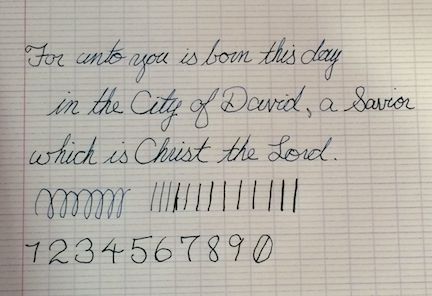 For unto you is born this day
in the City of David, a Savior
which is Christ the Lord.
1234567890